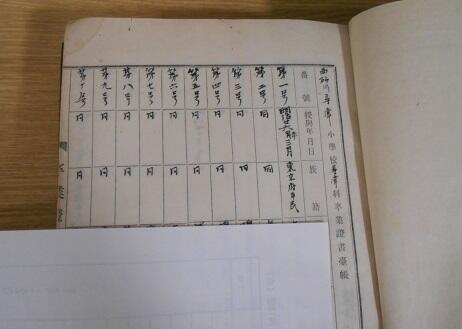 尋常小學校尋常科卒業證書臺帳
番號 授與年月日 族籍
第一号 明治廿六年三月 東京府平民
第二号 同 同
第三号 同 同
第四号 同 同
第五号 同 同
第六号 同 同
第七号 同 同
第八号 同 同
第九号 同 同
第十号 同 同